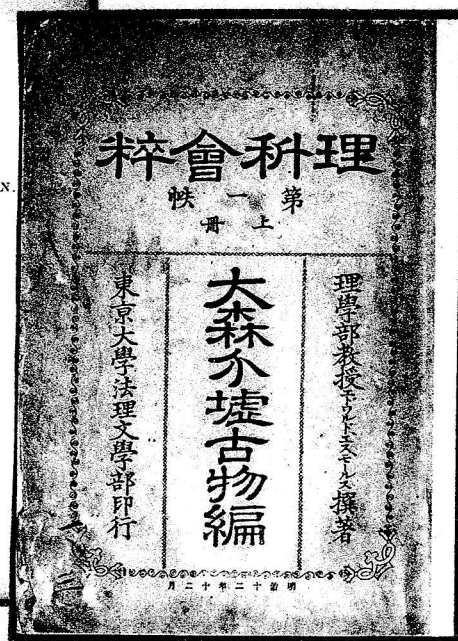 理科會粹
第一帙
上冊
理學部教授エドワルド、エス、モールス撰著
大森介墟古物編
東京大學法理文學部印行
明治十二年十二月
N.